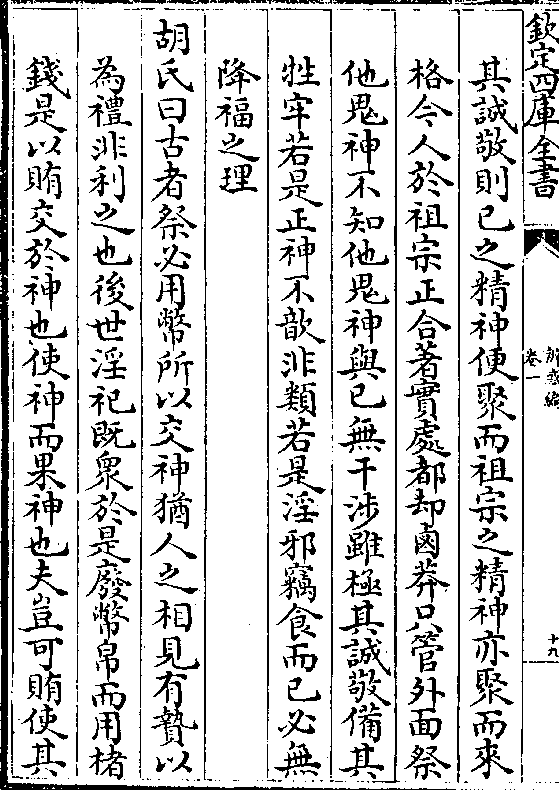 欽定四庫全書
辨惑編
卷一
十九
其誠敬則已之精神便聚而祖宗之精神亦聚而來
格今人於祖宗正合著實處都却鹵莽只管外面祭
他鬼神不知他鬼神與已無干涉雖極其誠敬備其
牲牢若是正神不歆非類若是淫邪竊食而已必無
降福之理
胡氏曰古者祭必用幣所以交神猶人之相見有贄以
為禮非利之也後世淫祀既衆於是廢幣帛而用楮
錢是以賄交於神也使神而果神也夫豈可賄使其